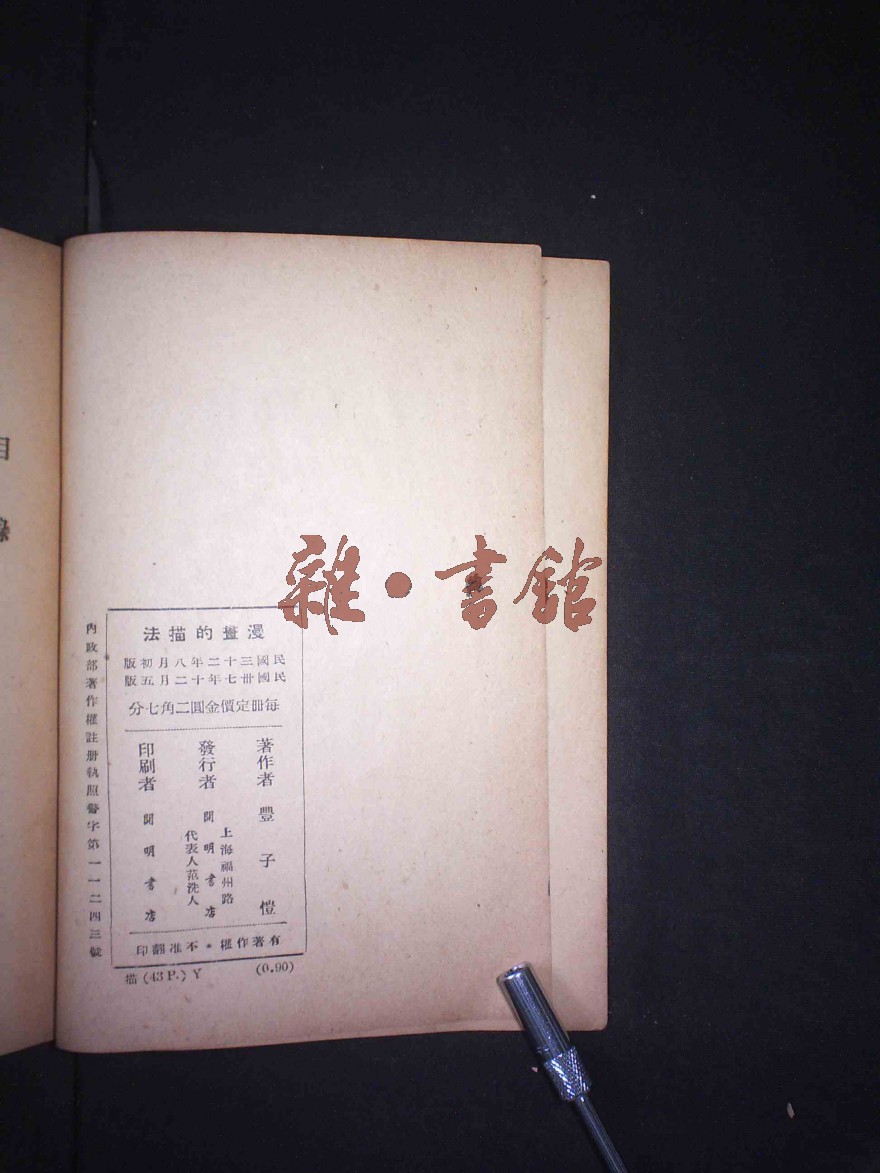 漫畫的描法
民國三十二年八月初版
民國卅七年十二月五版
每冊定價金圓二角七分
著作者 豐子愷
發行者 開明書店
上海福州路
代表人范洗人
印刷者 開明書店
有著作權•不准翻印
內政部著作權註册執照警字第一一二四三號
描(43P.)Y (0.90)
目錄
雜•書館